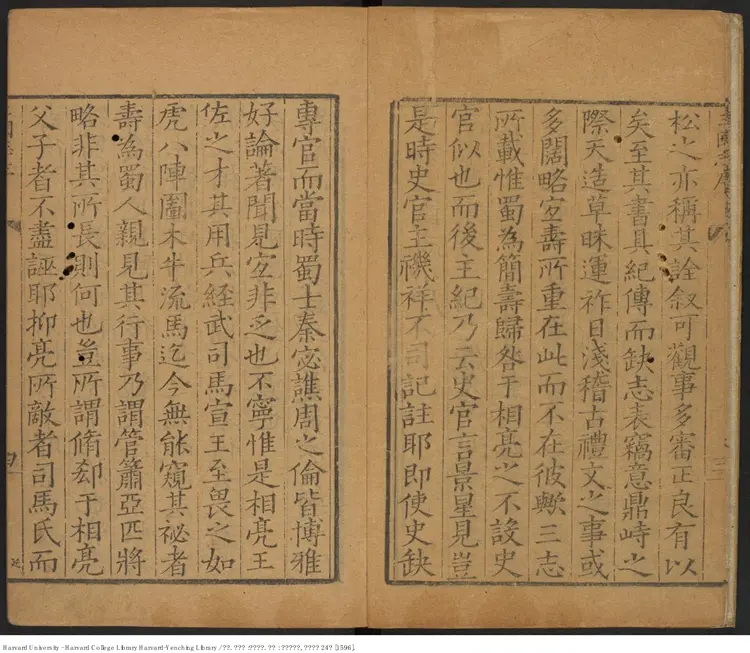 松之亦稱其詮叙可觀事多審正良有以
矣至其書具紀傳而缺志表竊意鼎峙之
際天造草昧運祚日淺稽古禮文之事或
多闊略㝎壽所重在此而不在彼歟三志
所載惟蜀為簡壽歸咎于相亮之不設史
官似也而後主紀乃云史官言景星見豈
是時史官主禨祥不司記註耶即使史缺
專官而當時蜀士秦宓譙周之倫皆博雅
好論著聞見㝎非乏也不寧惟是相亮王
佐之才其用兵經武司馬宣王至畏之如
虎八陣圖木牛流馬迄今無能窺其祕者
壽為蜀人親見其行事乃謂管簫亞匹將
略非其所長則何也豈所謂脩郄于相亮
父子者不盡誣耶抑亮所敵者司馬氏而
Harvard University - Harvard College Library Harvard-Yenching Library / ??. ??? :????. ?? : ?????, ???? 24? [1596].